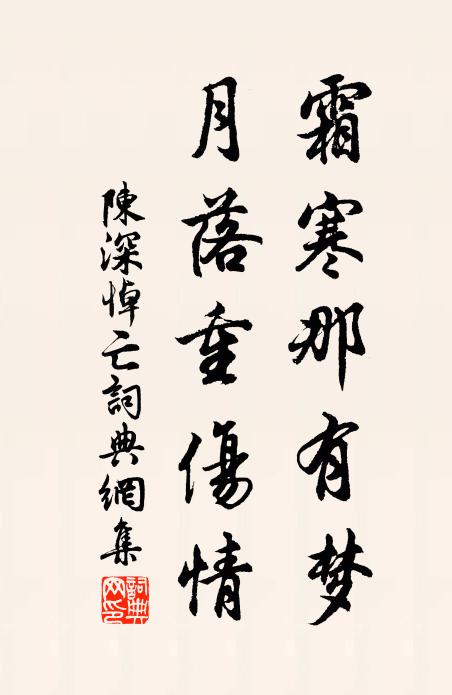 霜寒那有梦
月落重傷情
陳深悼亡詞典網集
詞典网印